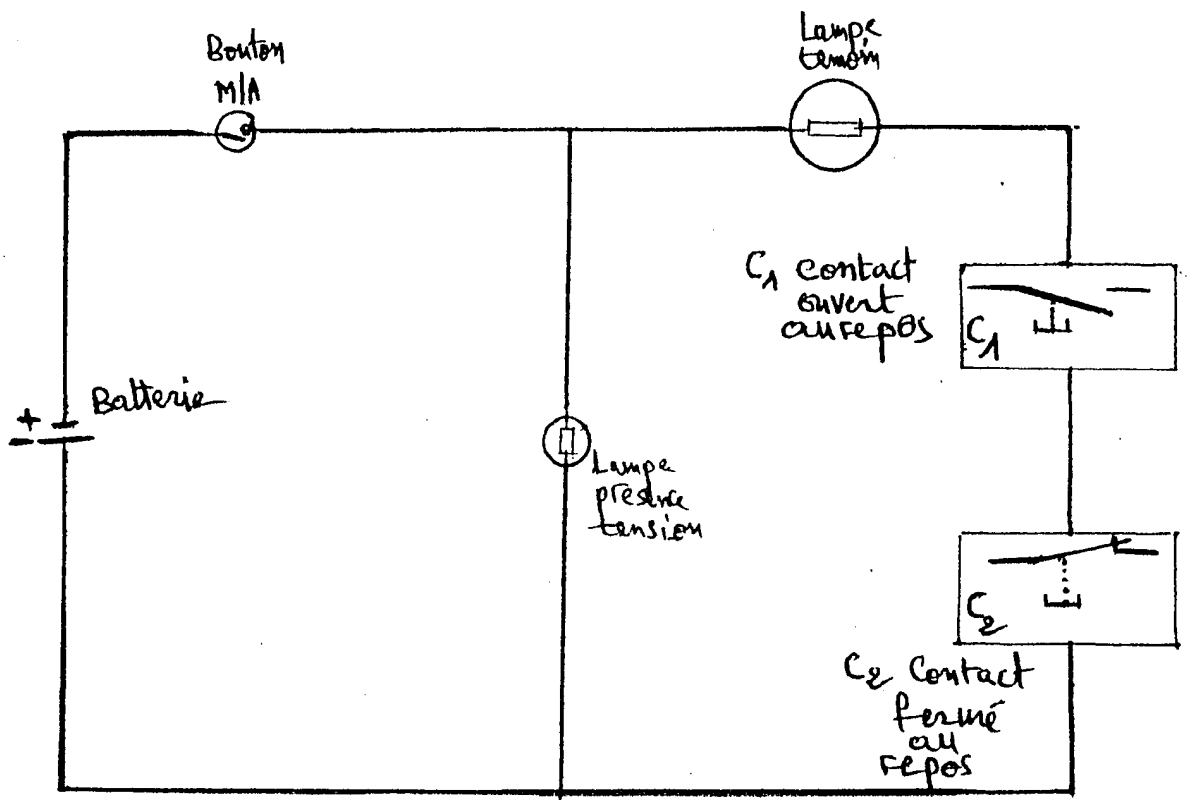 Bouton
M/A
Lampe
temoin
C1 contact
ouvert
au repos
C1
+
-
Batterie
Lampe
présence
tension
C2
C2 Contact
fermé
au
repos